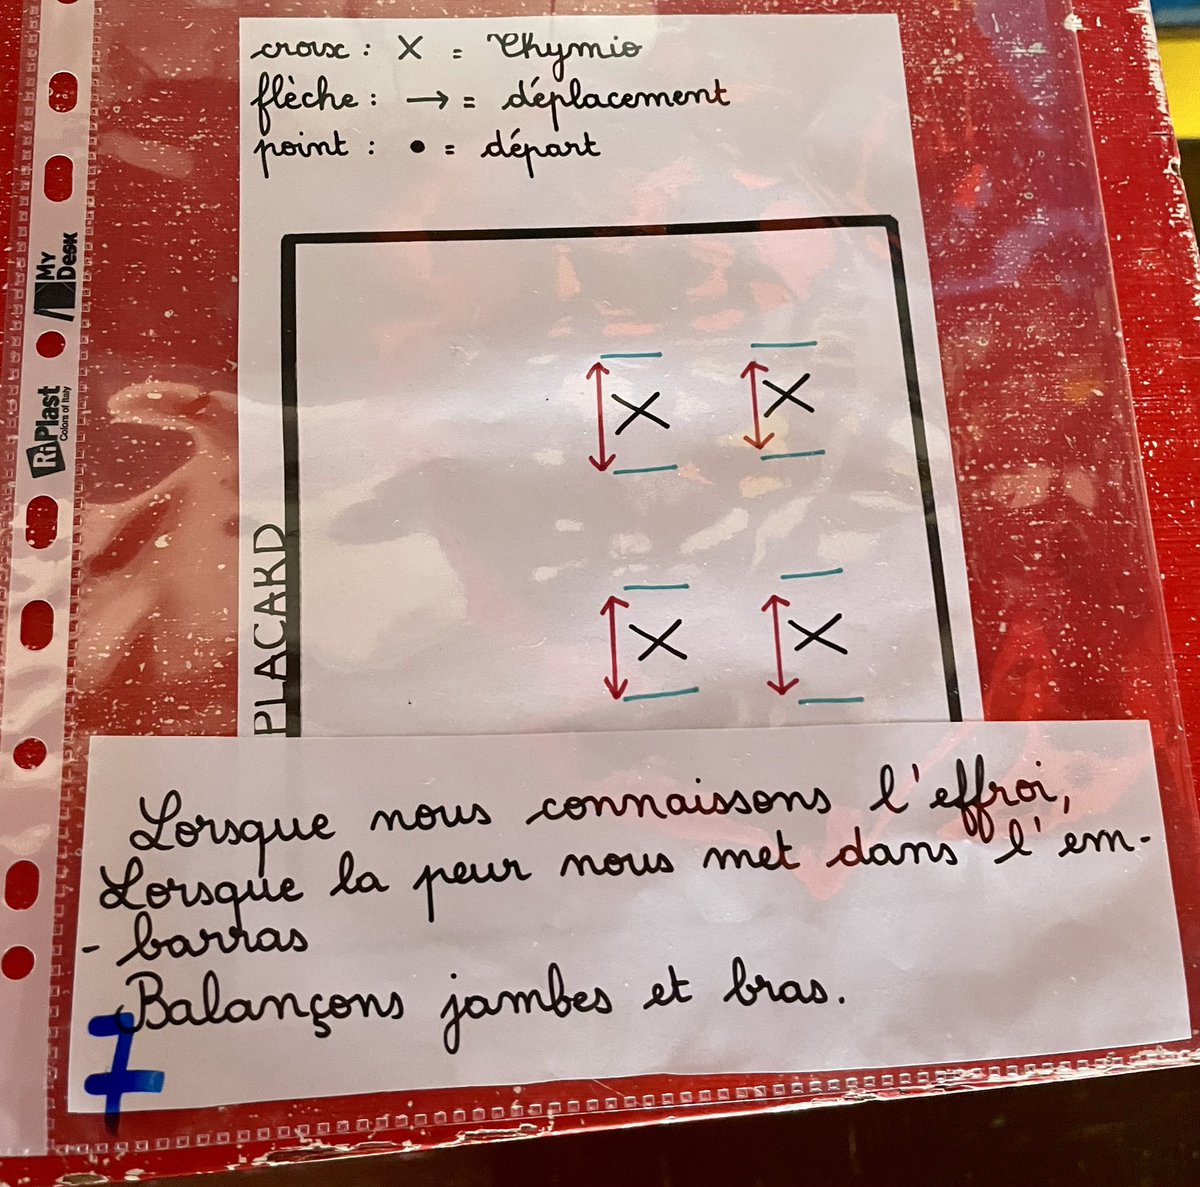 croix : X = Thymio
flèche : → = déplacement
point : • = départ
MY DESK
RiPlast
Colors of Italy
PLACARD
Lorsque nous connaissons l'effroi,
Lorsque la peur nous met dans l'em-
- barras
Balançons jambes et bras.
7